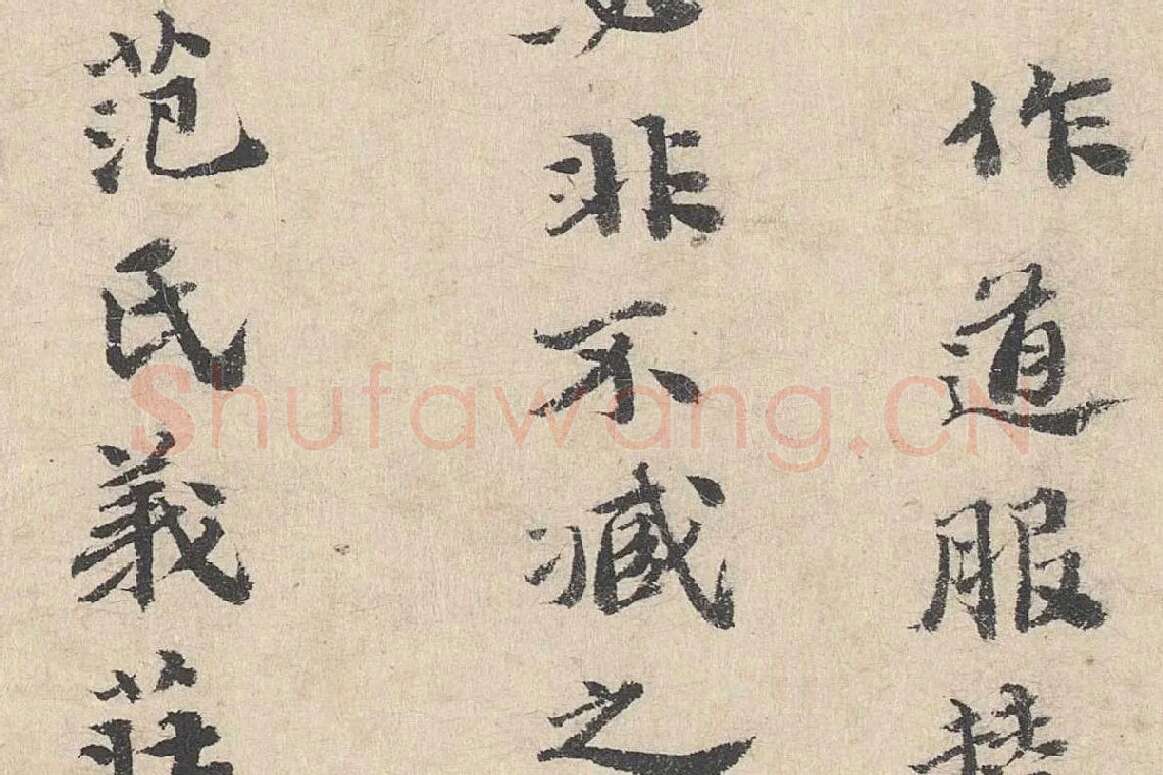 作道服贊
非不臧之
范氏義莊
Shufawang.CN